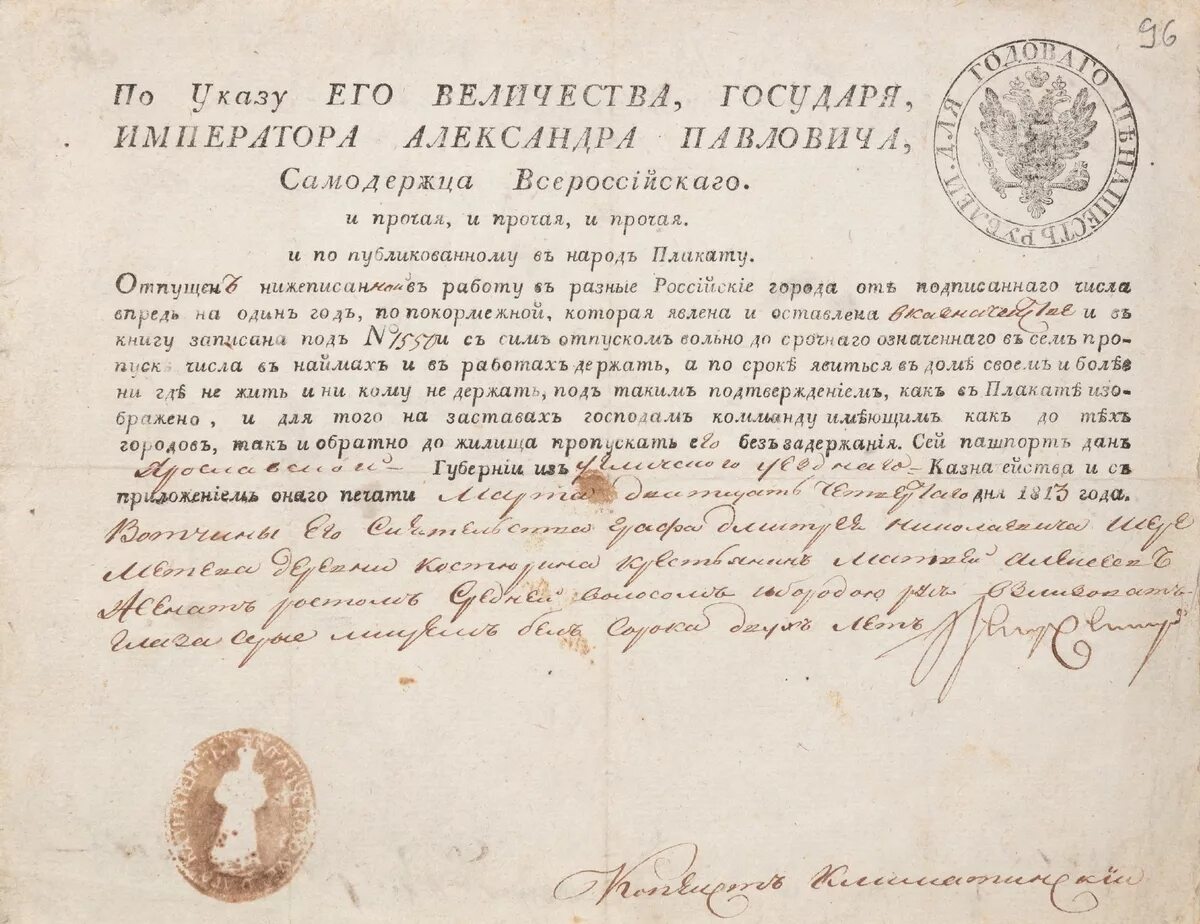 96
ДЛЯ ГОДОВАГО ПѢПАШЕСТЬ РУБЛЕЙ.
По Указу ЕГО ВЕЛИЧЕСТВА, ГОСУДАРЯ,
ИМПЕРАТОРА АЛЕКСАНДРА ПАВЛОВИЧА,
Самодержца Всероссійскаго.
и прочая, и прочая, и прочая.
и по публикованному въ народъ Плакату.
Отпущенъ нижеписанной въ работу въ разные Россійскіе города отъ подписаннаго числа
впредь на одинъ годъ, по покормежной, которая явлена и оставлена в казначействе и въ
книгу записана подъ № 1550 и съ симъ отпускомъ вольно до срочнаго означеннаго въ семъ про-
пускѣ числа въ наймахъ и въ работахъ держать, а по срокѣ явиться въ домѣ своемъ и болѣе
ни гдѣ не жить и ни кому не держать, подъ такимъ подтвержденіемъ, какъ въ Плакатѣ изо-
бражено, и для того на заставахъ господамъ комманду имѣющимъ какъ до тѣхъ
городовъ, такъ и обратно до жилища пропускать его безъ задержанія. Сей пашпортъ данъ
Ярославской Губерніи изъ Угличского уездного Казначейства и съ
приложеніемъ онаго печати Марта дватцать четвертаго дня 1813 года.
Вотчины Его Сиятельства графа Дмитрея Николаевича Шере
метева деревни Костюрина крестьянинъ Матвей Алексеевъ
женатъ ростомъ средней волосомъ и бородою рус
глаза серые лицемъ белъ сорока двухъ летъ
Копеистъ Климатинскій